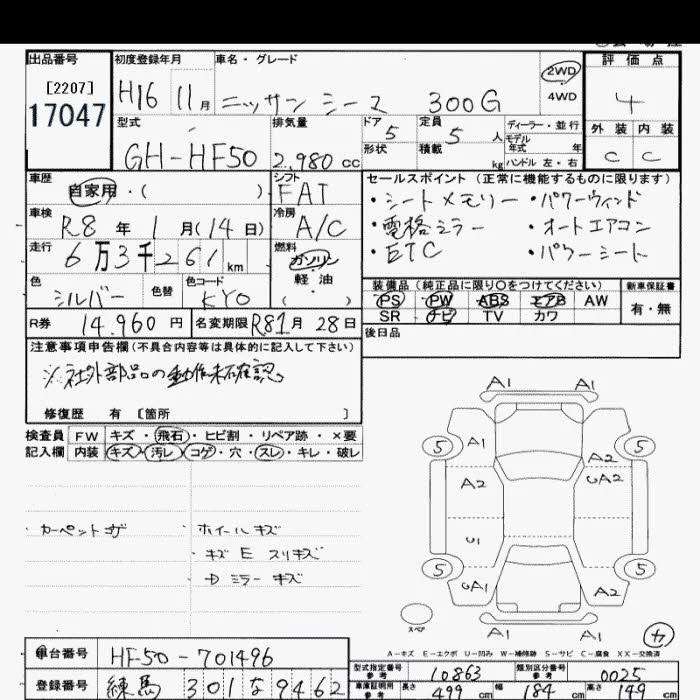 出品番号 初度登録年月 車名・グレード 評価点
[2207]
17047
H16 11月 ニッサン シーマ 300G 2WD 4WD 4
型式 排気量 ドア 5 定員 5 人 ディーラー・並行 外装 内装
形状 積載 kg モデル年式 年 ハンドル 左・右
GH-HF50 2,980 cc C C
車歴 シフト セールスポイント (正常に機能するものに限ります)
自家用・( ) FAT ・シートメモリー ・パワーウィンド
車検 冷房 ・電格ミラー ・オートエアコン
R8 年 1 月 (14日) A/C ・ETC ・パワーシート
走行 燃料
6万3千261 km ガソリン
軽・油
( )
色 色替 色コード 装備品 (純正品に限り○をつけてください) 新車保証書
シルバー KYO PS PW ABS エアB AW 有・無
SR ナビ TV カワ
R券 14,960 円 名変期限 R8 1月 28日 後日品
注意事項申告欄 (不具合内容等は具体的に記入して下さい)
※社外部品の動作未確認
修復歴 有 [箇所 ]
検査員 FW キズ・飛石・ヒビ割・リペア跡・×要
記入欄 内装 キズ・汚レ・コゲ・穴・スレ・キレ・破レ
・ホイールキズ
・キズ E スリキズ
・ミラーキズ
A1 A1
5 A1 A2 5
A2 UA2
U1
5 UA1 A2 5
A1 A1
スペア
4
A-キズ E-エクボ U-凹み W-補修跡 S-サビ C-腐食 XX-交換済
車台番号 HF50-701496
型式指定番号 参考 10863 類別区分番号 参考 0025
登録番号 練馬 301 な 9462
車庫証明用 参考 長さ 499 cm 幅 184 cm 高さ 149 cm